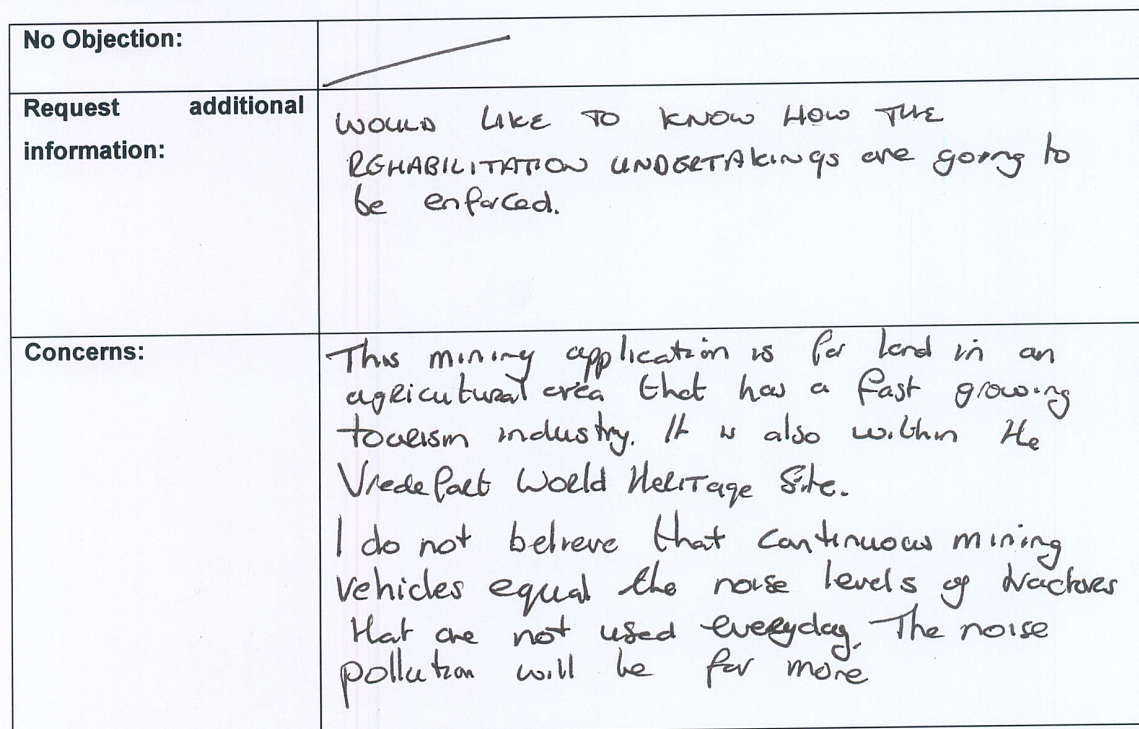 No Objection:
Request additional
information:
WOULD LIKE TO KNOW HOW THE
REHABILITATION UNDERTAKINGS are going to
be enforced.
Concerns:
This mining application is for land in an
agricultural area that has a fast growing
tourism industry. It is also within the
Vredefort World Heritage Site.
I do not believe that continuous mining
vehicles equal the noise levels of tractors
that are not used everyday. The noise
pollution will be far more